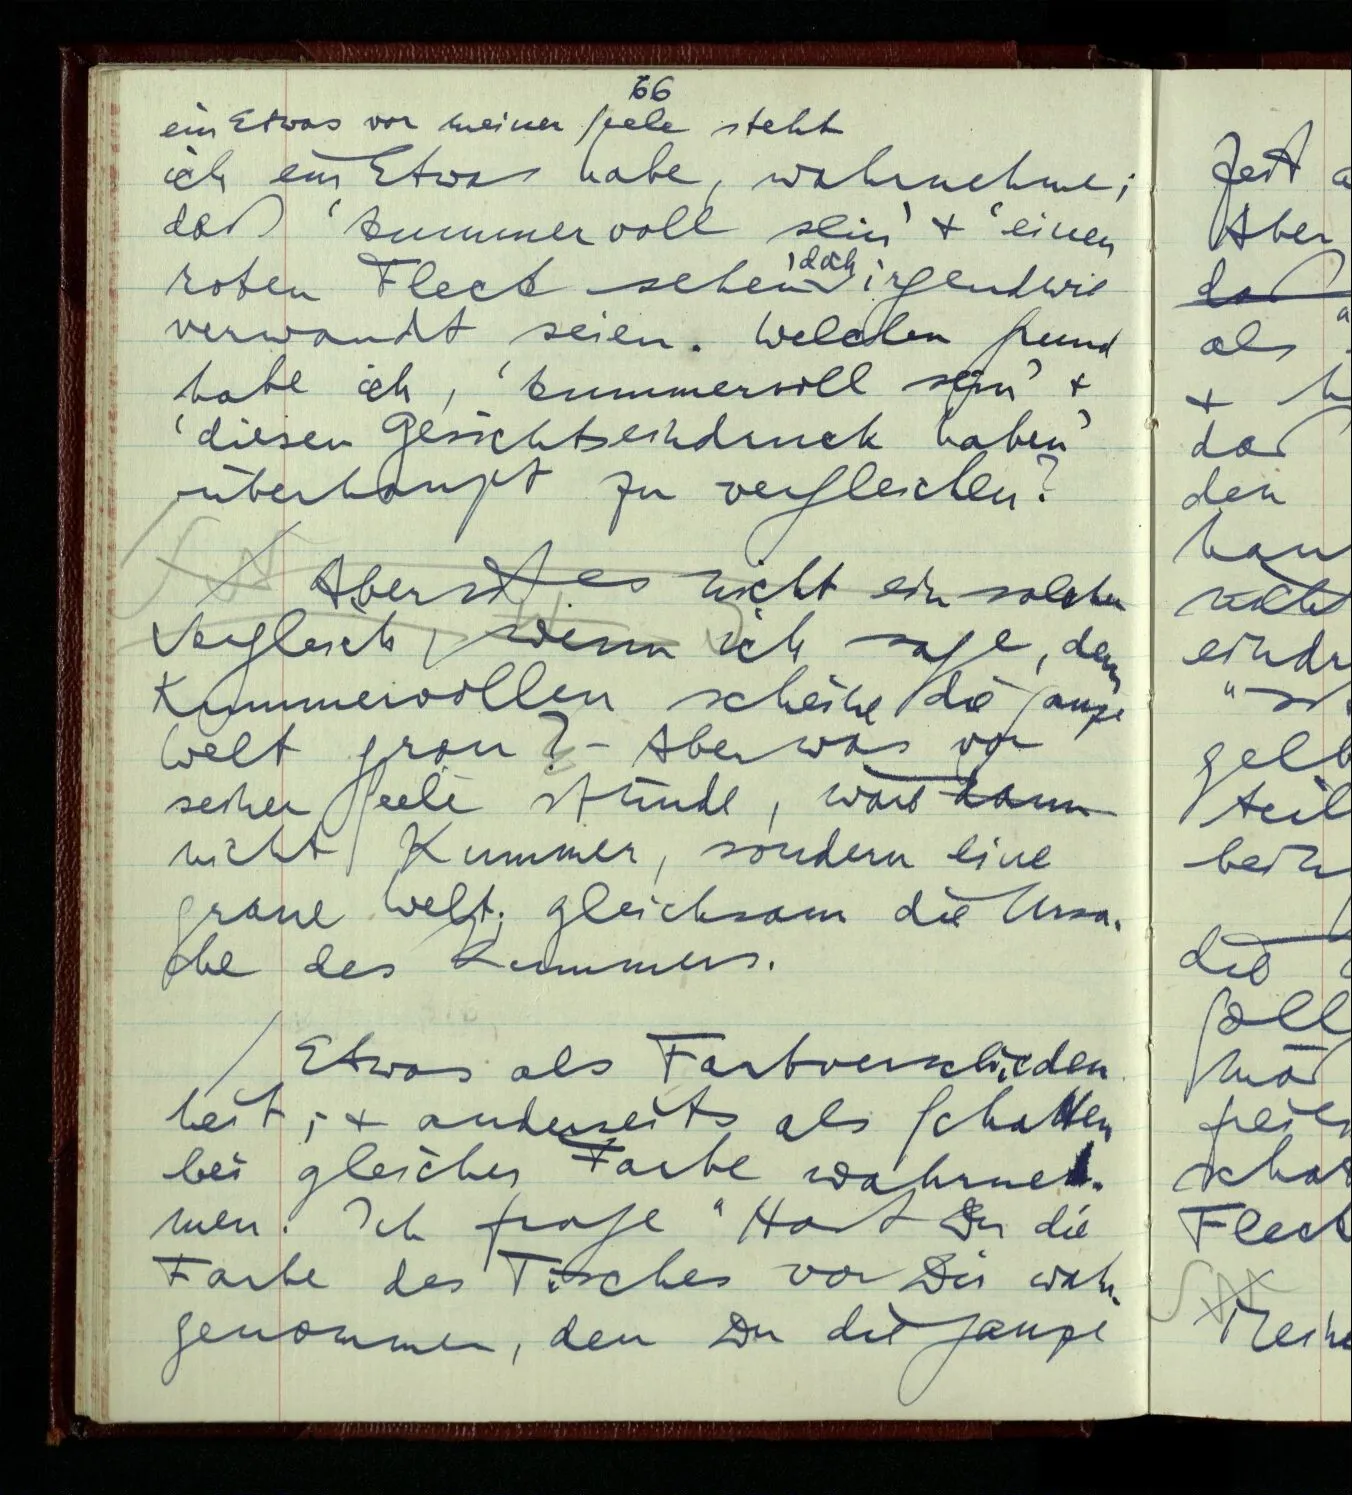 66
ein Etwas vor meiner Seele steht
ich ein Etwas habe, wahrnehme;
daß 'kummervoll sein' + 'einen
roten Fleck sehen' doch irgendwie
verwandt seien. Welchen Grund
habe ich, 'kummervoll sein' +
'diesen Gesichtseindruck haben'
überhaupt zu vergleichen?
Aber ist es nicht ein solcher
Vergleich, wenn ich sage, dem
Kummervollen scheine die ganze
Welt grau? – Aber was vor
seiner Seele stünde, wäre dann
nicht Kummer, sondern eine
graue Welt; gleichsam die Ursa-
che des Kummers.
Etwas als Farbverschieden
heit; + anderseits als Schatten
bei gleicher Farbe wahrneh-
men. Ich frage "Hast Du die
Farbe des Tisches vor Dir wahr-
genommen, den Du die ganze
Zeit
Aber
daß
als
+
daß
den
eindr
gelb
teil
die
soll
Fleck